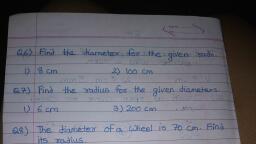 Q.6) Find the diameter for the given radii.
1) 8 cm 2) 100 cm
Q.7) Find the radius for the given diameters
1) 6 cm 3) 200 cm
Q8) The diameter of a wheel is 70 cm. Find
its radius.